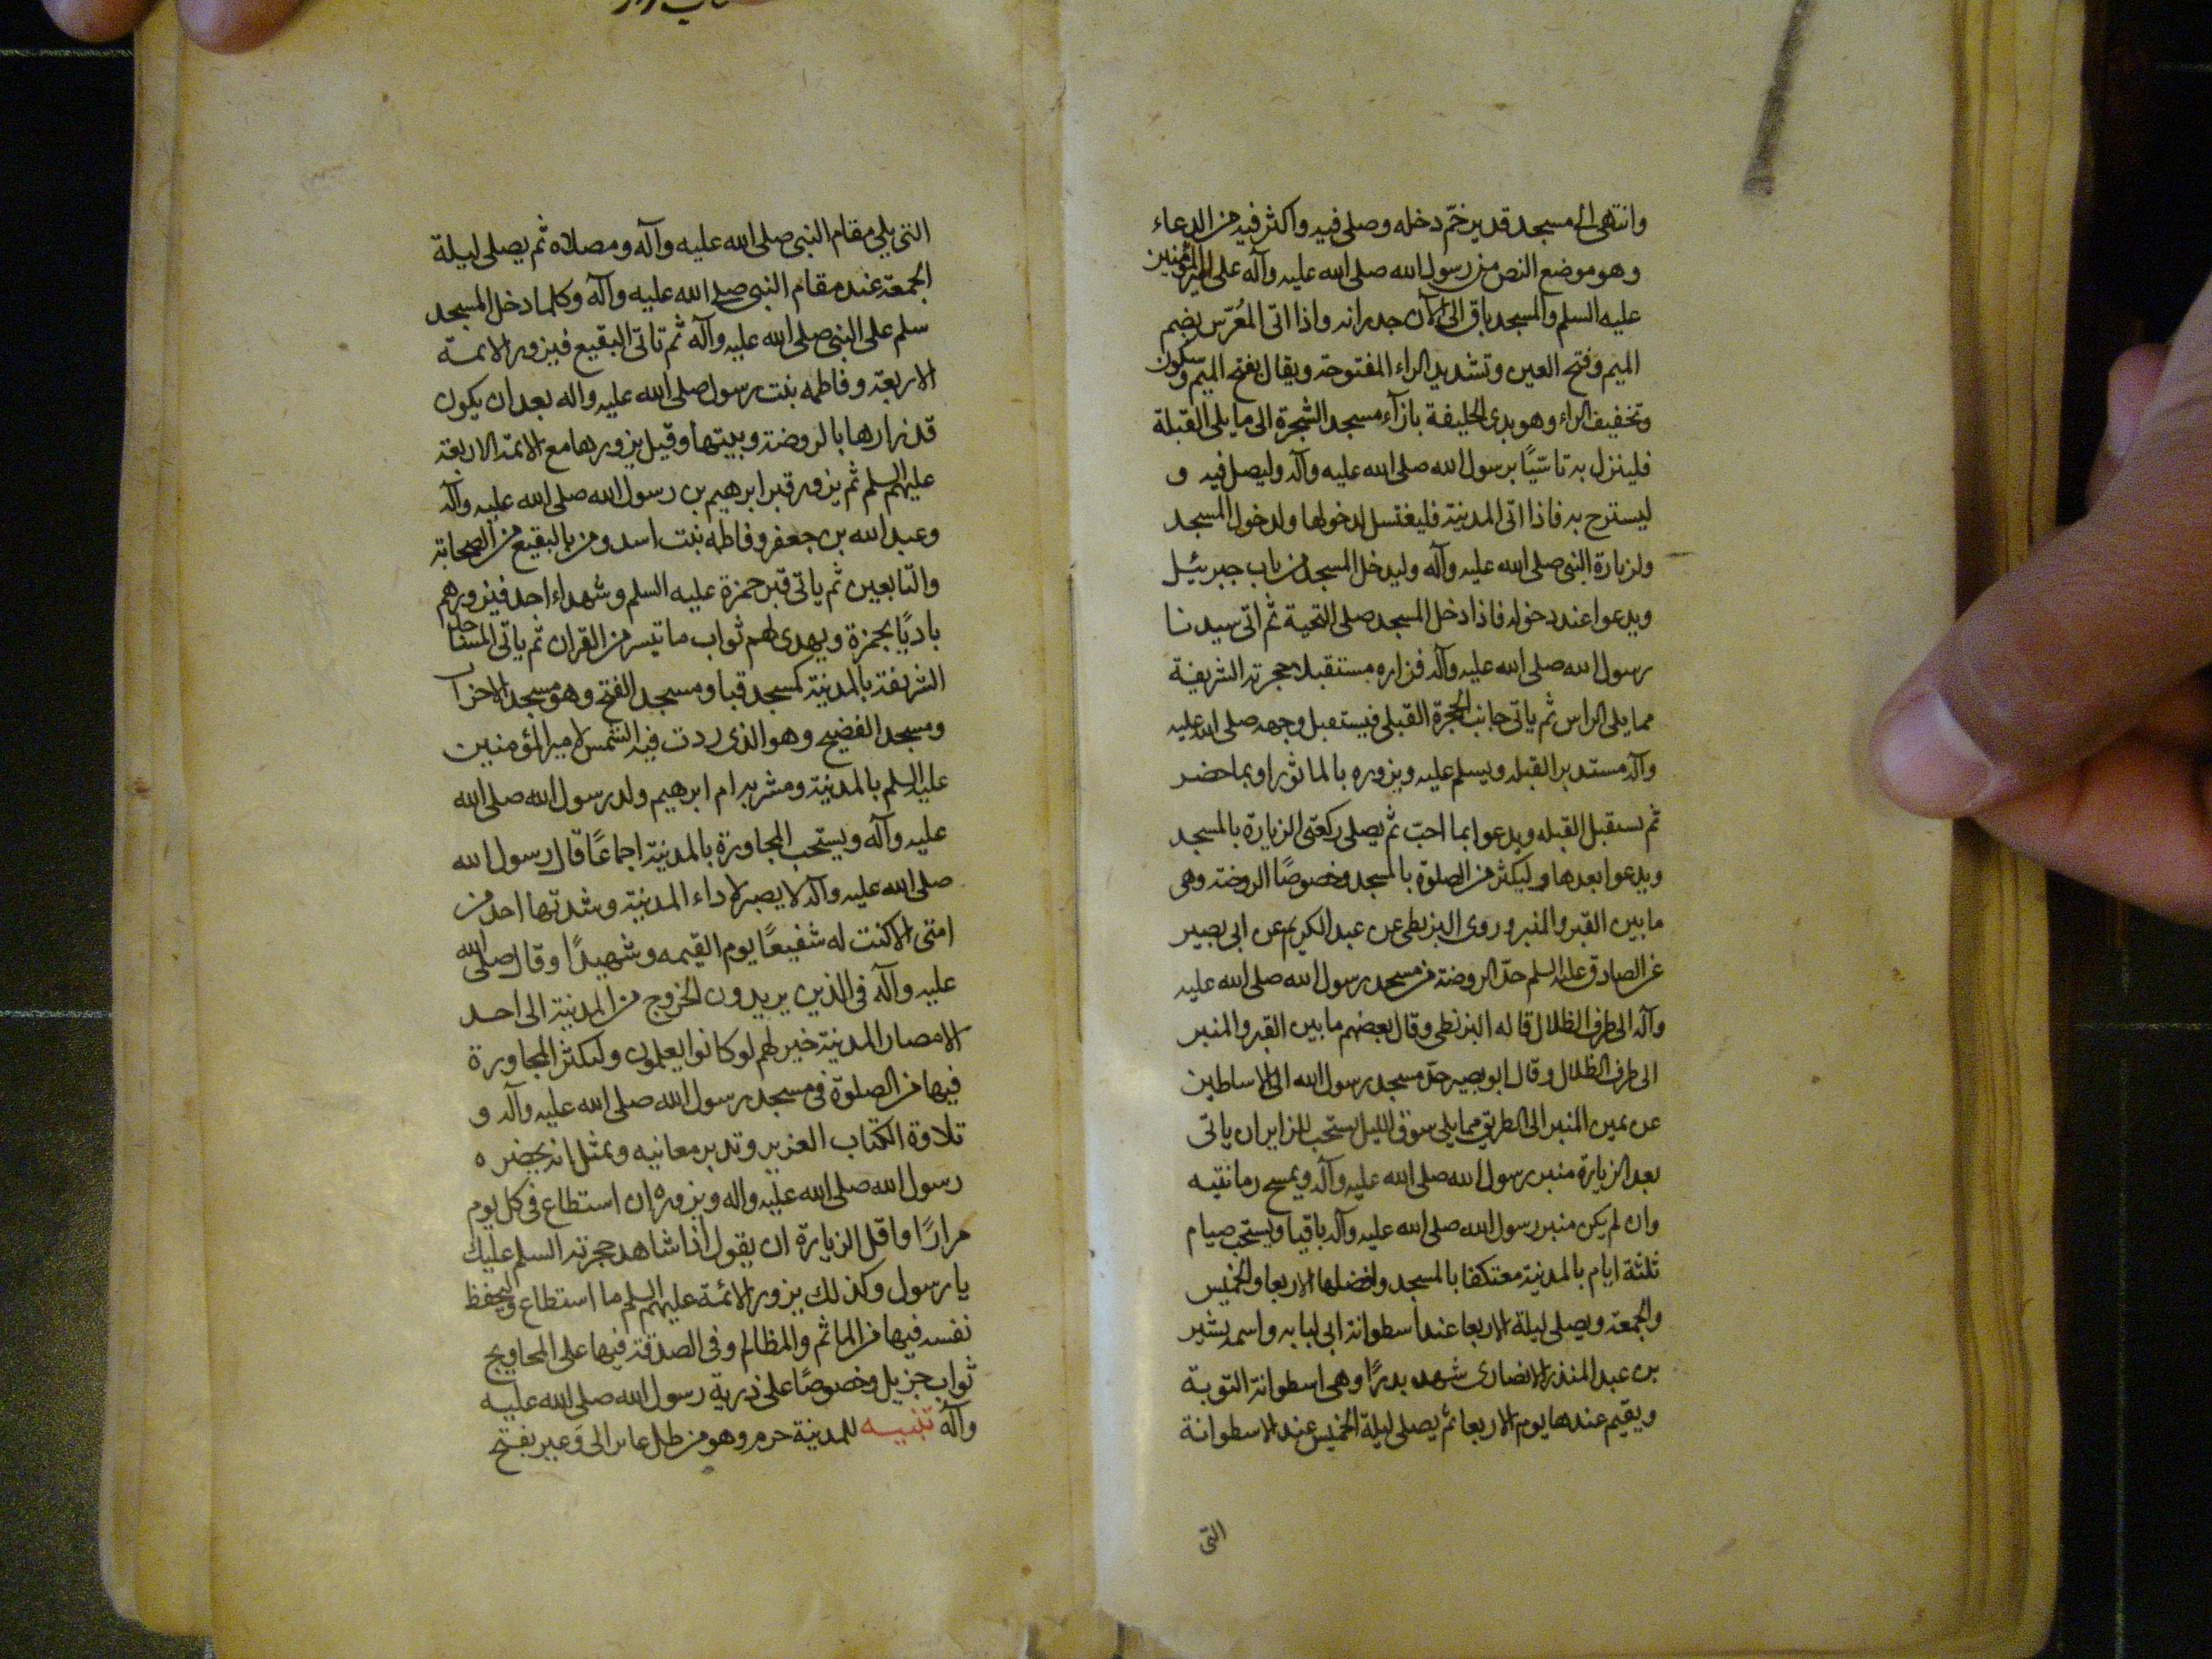 وانتهى الى مسجد غدير خمّ دخله وصلى فيه واكثر فيه من الدعاء
وهو موضع النص من رسول الله صلى الله عليه وآله على امير المؤمنين
عليه السلم والمسجد باق الى الآن جدرانه واذا اتى المُعَرّس بضم
الميم وفتح العين وتشديد الراء المفتوحة ويقال بفتح الميم وسكون
وتخفيف الراء وهو بذى الحليفة بازآء مسجد الشجرة الى ما يلى القبلة
فلينزل به تاسّيًا برسول الله صلى الله عليه وآله وليصل فيه و
ليسترح به فاذا اتى المدينة فليغتسل لدخولها ولدخول المسجد
ولزيارة النبى صلى الله عليه وآله وليدخل المسجد من باب جبرئيل
ويدعوا عند دخوله فاذا دخل المسجد صلى التحية ثم اتى سيدنا
رسول الله صلى الله عليه وآله فزاره مستقبلا حجرته الشريفة
مما يلى الراس ثم ياتى جانب الحجرة القبلى فيستقبل وجهه صلى الله عليه
وآله مستدبر القبله ويسلم عليه ويزوره بالماثور او بما حضر
ثم يستقبل القبله ويدعوا بما احبّ ثم يصلى ركعتى الزيارة بالمسجد
ويدعوا بعدها وليكثر من الصلوة بالمسجد وخصوصًا الروضة وهى
ما بين القبر والمنبر وروى البزنطى عن عبد الكريم عن ابى بصير
عن الصادق عليه السلم حدّ الروضة من مسجد رسول الله صلى الله عليه
وآله الى طرف الظلال قاله البزنطى وقال بعضهم ما بين القبر والمنبر
الى طرف الظلال وقال ابو بصير حدّ مسجد رسول الله الى الاساطين
عن يمين المنبر الى الطريق مما يلى سوق الليل يستحب للزاير ان ياتى
بعد الزيارة منبر رسول الله صلى الله عليه وآله ويمسح رمانتيه
وان لم يكن منبر رسول الله صلى الله عليه وآله باقيا ويستحب صيام
ثلثة ايام بالمدينة معتكفا بالمسجد وافضلها الاربعا والخميس
والجمعة ويصلى ليلة الاربعا عند اسطوانة ابى لبابه واسمه بشير
بن عبد المنذر الانصارى شهد بدرًا وهى اسطوانة التوبة
ويقيم عندها يوم الاربعا ثم يصلى ليلة الخميس عند الاسطوانة
التى
التى يلى مقام النبى صلى الله عليه وآله ومصلاه ثم يصلى ليلة
الجمعة عند مقام النبى صلى الله عليه وآله وكلما دخل المسجد
سلم على النبى صلى الله عليه وآله ثم تاتى البقيع فيزور الائمة
الاربعة وفاطمه بنت رسول صلى الله عليه واله بعد ان يكون
قد زارها بالروضة وبيتها وقيل يزورها مع الائمة الاربعة
عليهم السلم ثم يزور قبر ابرهيم بن رسول الله صلى الله عليه وآله
وعبد الله بن جعفر وفاطمه بنت اسد ومن بالبقيع من الصحابة
والتابعين ثم ياتى قبر حمزة عليه السلم وشهداء احد فيزورهم
باديًا بحمزة ويهدى لهم ثواب ما تيسر من القران ثم ياتى المساجد
الشريفة بالمدينة كمسجد قبا ومسجد الفتح وهو مسجد الاحزاب
ومسجد الفضيح وهو الذى ردت فيه الشمس لامير المؤمنين
عليه السلم بالمدينة ومشربه ام ابرهيم ولد رسول الله صلى الله
عليه وآله ويستحب المجاورة بالمدينة اجماعًا قال رسول الله
صلى الله عليه وآله لا يصبر لاداء المدينة وشدتها احد من
امتى الا كنت له شفيعًا يوم القيمه وشهيدًا وقال صلى الله
عليه وآله فى الذين يريدون الخروج من المدينة الى احد
الامصار المدينة خير لهم لو كانوا يعلمون وليكثر المجاورة
فيها من الصلوة فى مسجد رسول الله صلى الله عليه وآله و
تلاوة الكتاب العزيز وتدبر معانيه وبمثل انه بحضره
رسول الله صلى الله عليه واله ويزوره ان استطاع فى كل يوم
مرارًا واقل الزيارة ان يقول اذا شاهد حجرته السلم عليك
يا رسول وكذلك يزور الائمة عليهم السلم ما استطاع وليحفظ
نفسه فيها من الماثم والمظالم وفى الصدقة فيها على المحاويج
ثواب جزيل وخصوصًا على ذرية رسول الله صلى الله عليه
وآله تنبيه للمدينة حرم وهو من ظل عاير الى وعير بفتح